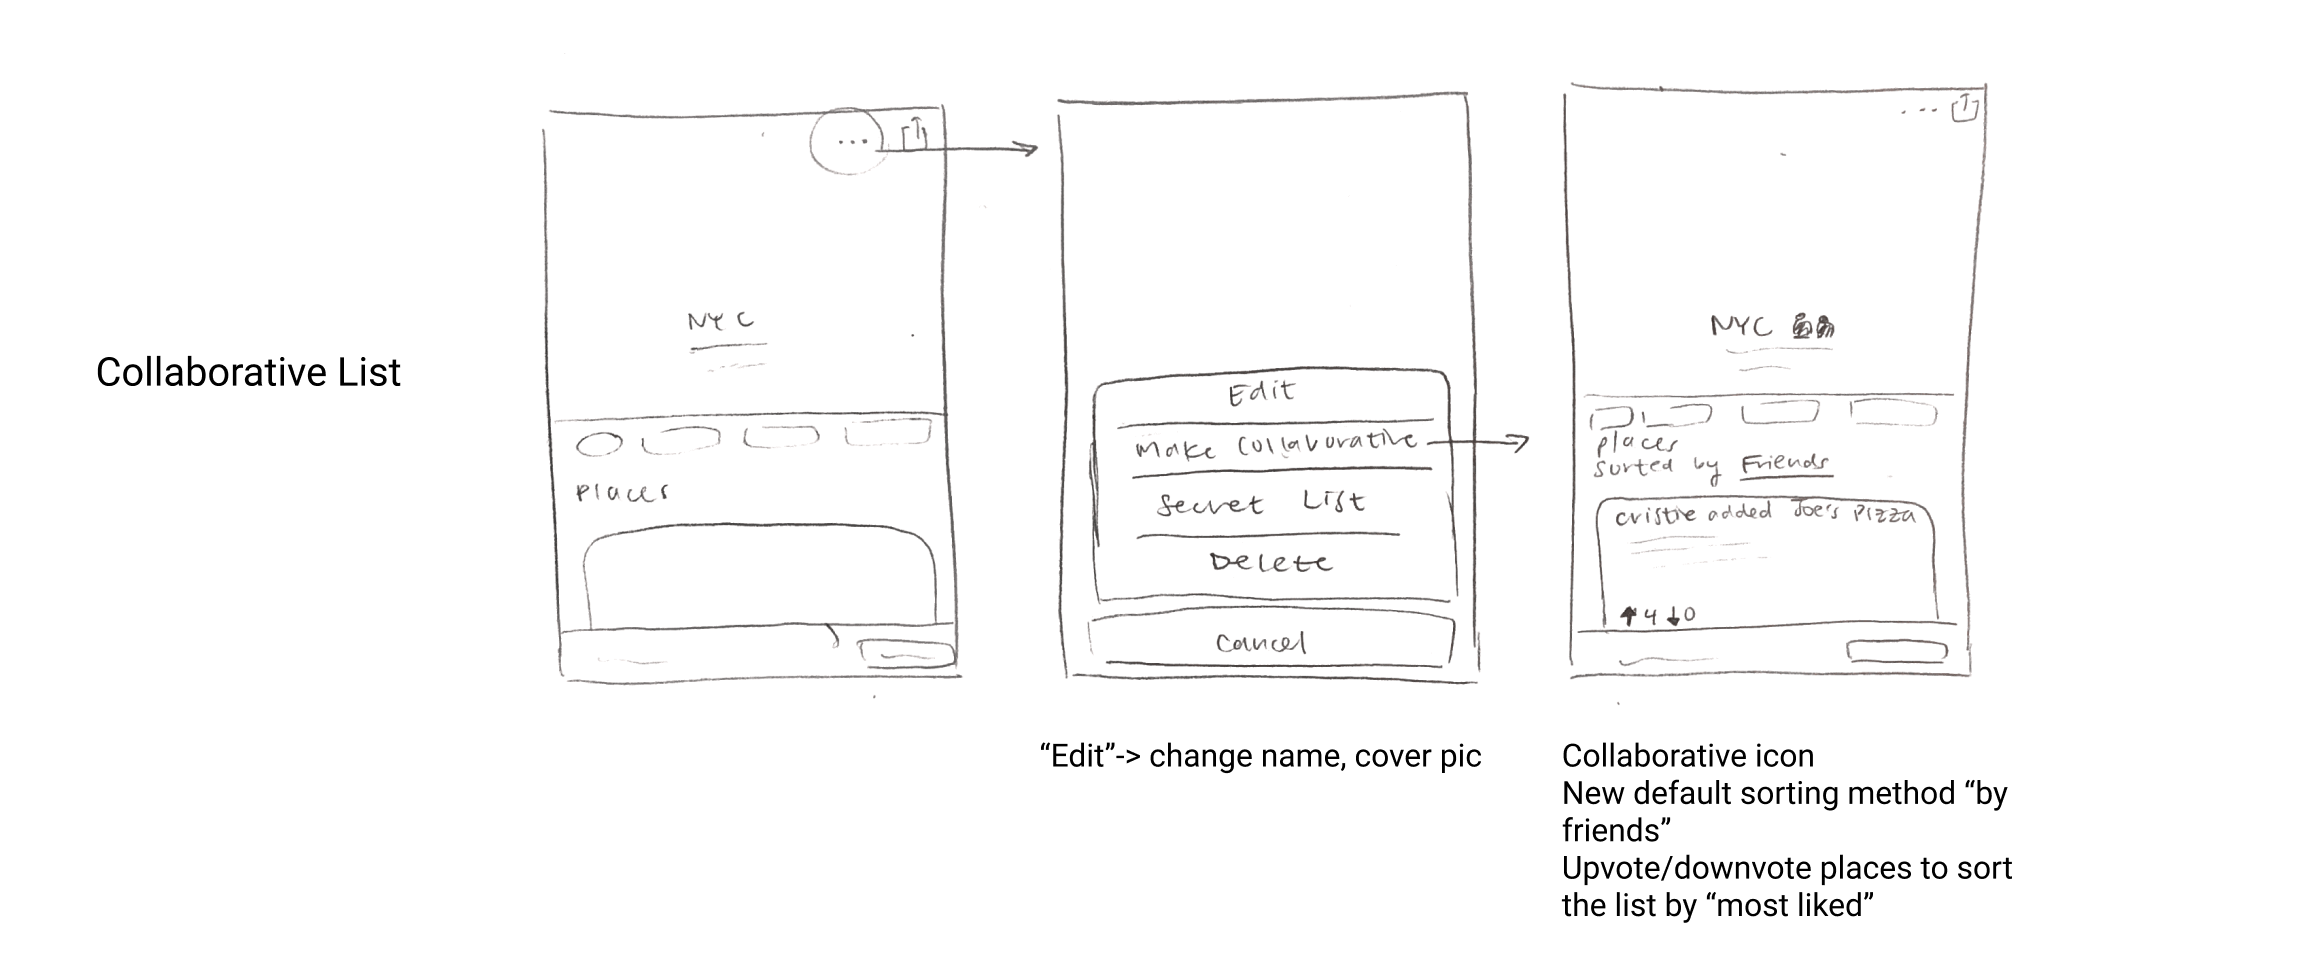 Collaborative List
...
NYC
Places
Edit
Make Collaborative
Secret List
Delete
Cancel
“Edit”-> change name, cover pic
...
NYC
places
sorted by Friends
cristie added Joe's Pizza
↑4 ↓0
Collaborative icon
New default sorting method “by
friends”
Upvote/downvote places to sort
the list by “most liked”